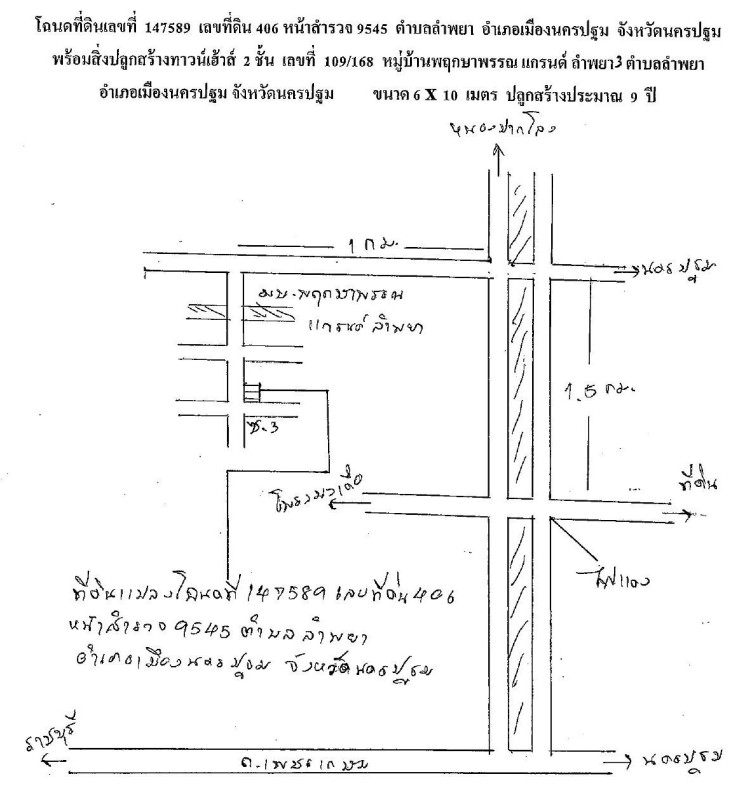 โฉนดที่ดินเลขที่ 147589 เลขที่ดิน 406 หน้าสำรวจ 9545 ตำบลลำพยา อำเภอเมืองนครปฐม จังหวัดนครปฐม
พร้อมสิ่งปลูกสร้างทาวน์เฮ้าส์ 2 ชั้น เลขที่ 109/168 หมู่บ้านพฤกษาพรรณ แกรนด์ ลำพยา3 ตำบลลำพยา
อำเภอเมืองนครปฐม จังหวัดนครปฐม ขนาด 6 X 10 เมตร ปลูกสร้างประมาณ 9 ปี
หนองปากโลง
1 กม.
นครปฐม
มบ.พฤกษาพรรณ
แกรนด์ ลำพยา
1.5 กม.
ซ.3
ที่ดิน
ไฟแดง
ที่ดินแปลงโฉนดที่ 147589 เลขที่ดิน 406
หน้าสำรวจ 9545 ตำบล ลำพยา
อำเภอเมืองนครปฐม จังหวัดนครปฐม
ราชบุรี
ถ.เพชรเกษม
นครปฐม